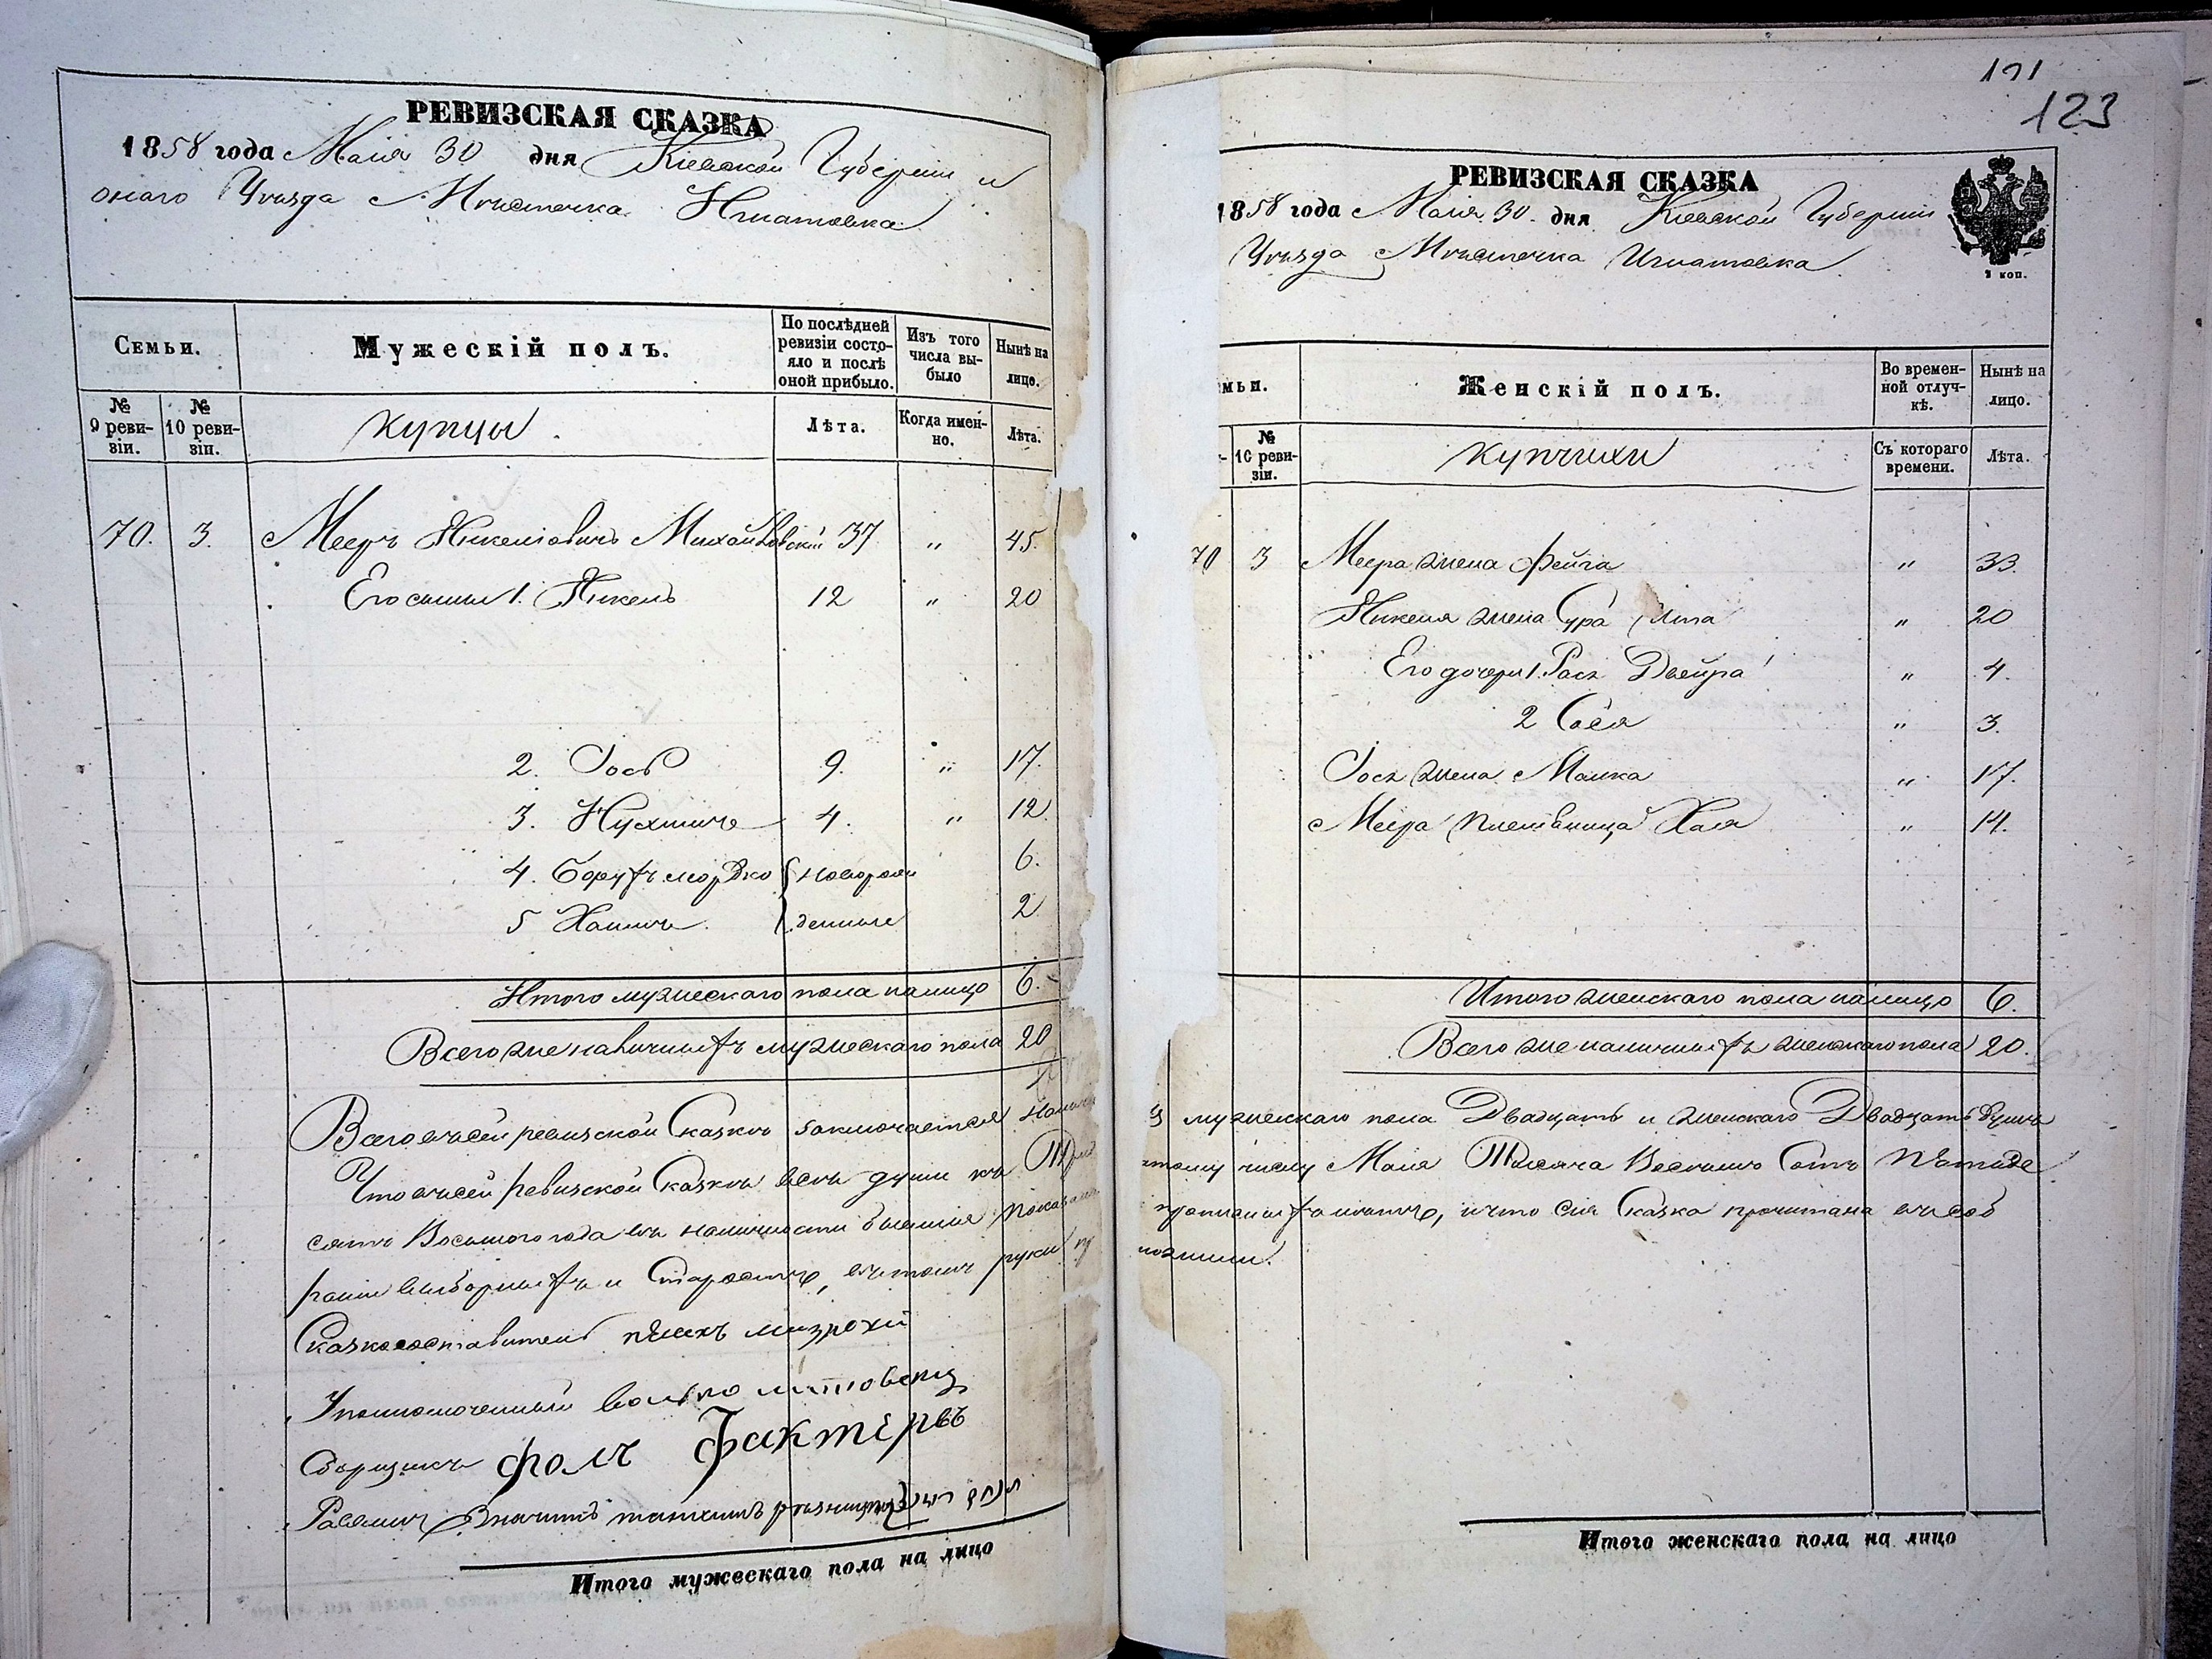 РЕВИЗСКАЯ СКАЗКА
1858 года Маія 30 дня Кіевской Губерніи и
онаго Уѣзда Мѣстечка Игнатовка
Семьи.
Мужескій полъ.
По послѣдней ревизіи состояло и послѣ оной прибыло.
Изъ того числа выбыло
Нынѣ на лицо.
№ 9 ревизіи.
№ 10 ревизіи.
Купцы.
Лѣта.
Когда именно.
Лѣта.
70. 3. Мееръ Янкеліовичъ Михайловскій 37 " 45.
Его сыны 1. Янкель 12 " 20
2. Іось 9. " 17.
3. Нухимъ 4. " 12.
4. Борухъ мордко новорож 6.
5 Хаимъ денные 2
Итого мужескаго пола налицо 6.
Всего же наличныхъ мужескаго пола 20
Всего въ сей ревизской Сказкѣ заключается
Что въ сей ревизской Сказкѣ всѣ души къ
сятъ Восьмого года въ наличности бывшія
раніи выборныхъ и Старостъ, въ томъ руки
Сказкосоставитель
Уполномоченный
Сборщикъ
Фактеръ
Итого мужескаго пола на лицо
121
123
РЕВИЗСКАЯ СКАЗКА
1858 года Маія 30. дня Кіевской Губерніи
Уѣзда Мѣстечка Игнатовка.
3 коп.
мьи.
Женскій полъ.
Во временной отлучкѣ.
Нынѣ на лицо.
№ 10 ревизіи.
Купчихи
Съ котораго времени.
Лѣта.
70 3 Меера жена Фейга " 33.
Янкеля жена Сура " 20
Его дочери 1. Двейра " 4.
2 Сося " 3.
Іося жена Малка " 17.
Меера племѣница Хая " 14.
Итого женскаго пола налицо 6.
Всего же наличныхъ женскаго пола 20.
мужескаго пола Двадцать и женскаго Двадцать душъ
числу Маія Тысяча Восемь Сотъ Пятиде
и что сія Сказка прочитана въ соб
ложили.
Итого женскаго пола на лицо